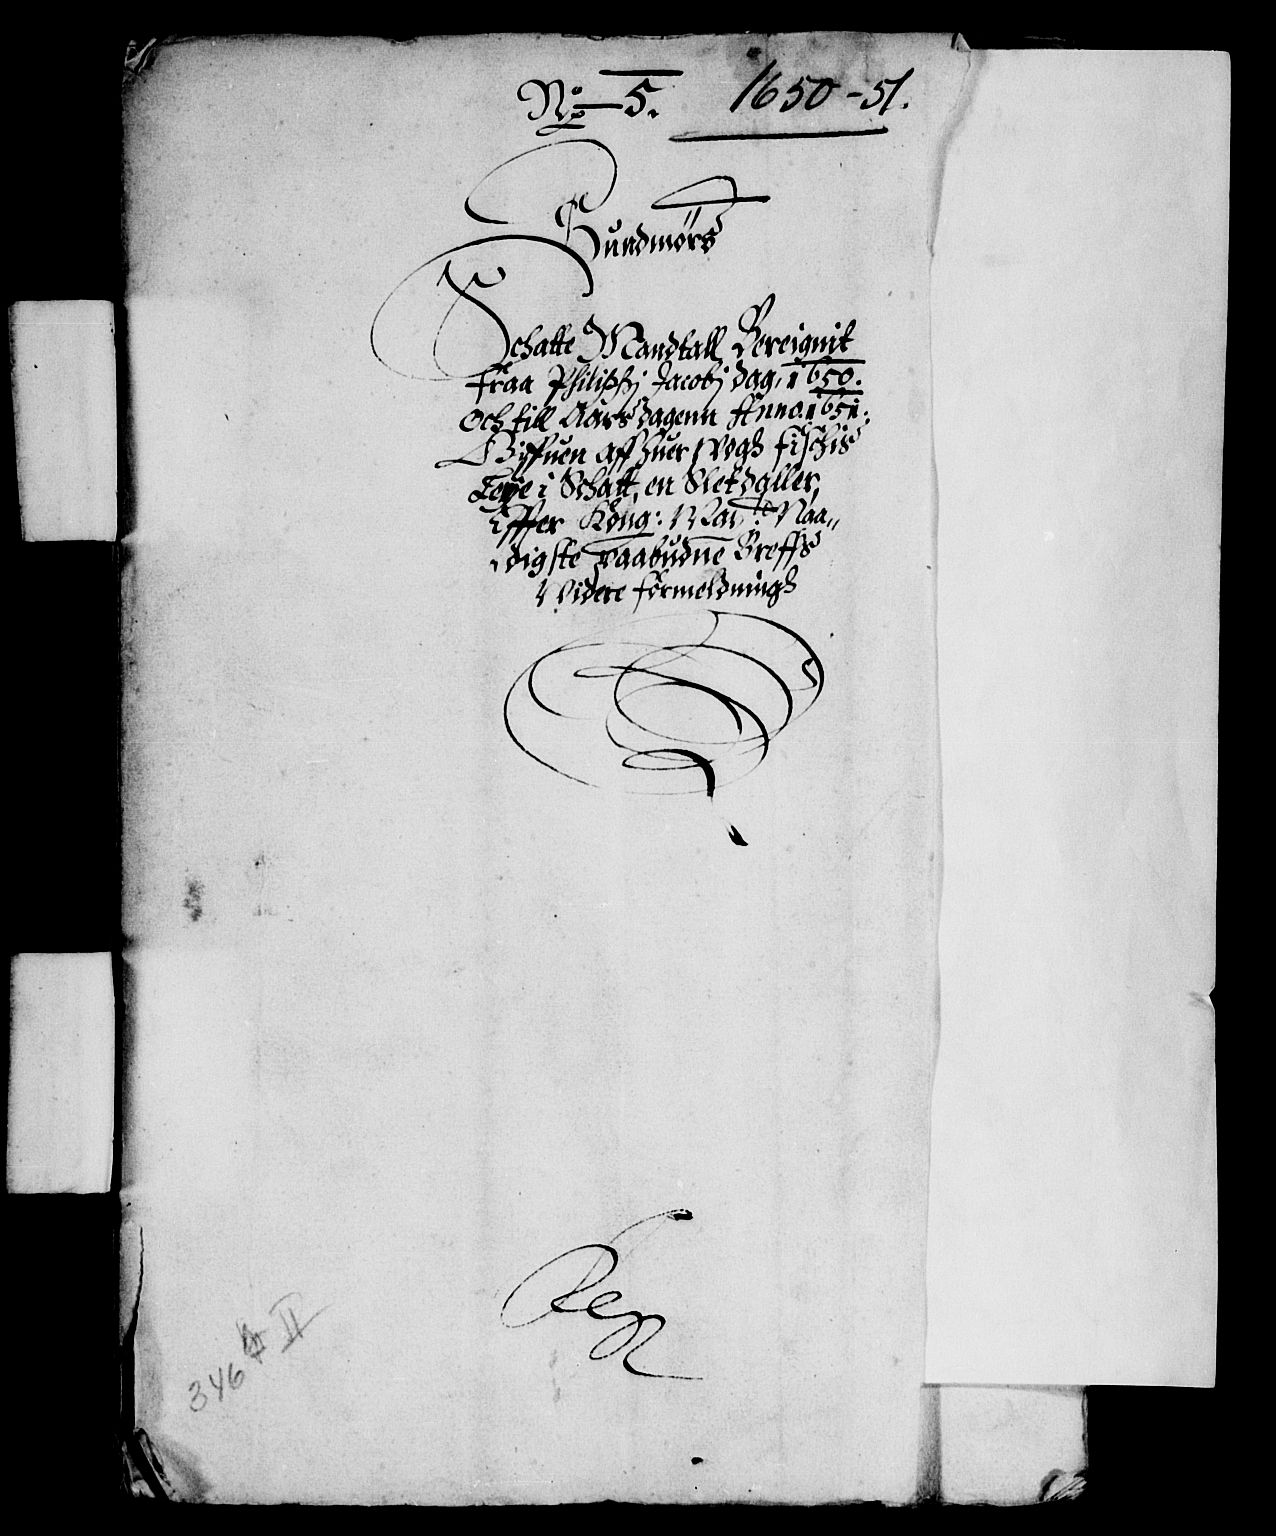 No 5. 1650-51.
Sundmørs
Schatte Mandtall Bereignit
fraa Philippj Jacobj dag, 1650.
och till Aarsdagenn Anno 1651:
Giffuen aff huer Wogh fischis
Leye i Schatt, en Sletdaller,
effter Kong: May: tz Naa„
digste paabudne Breffs
Widere formeldningh
346 II